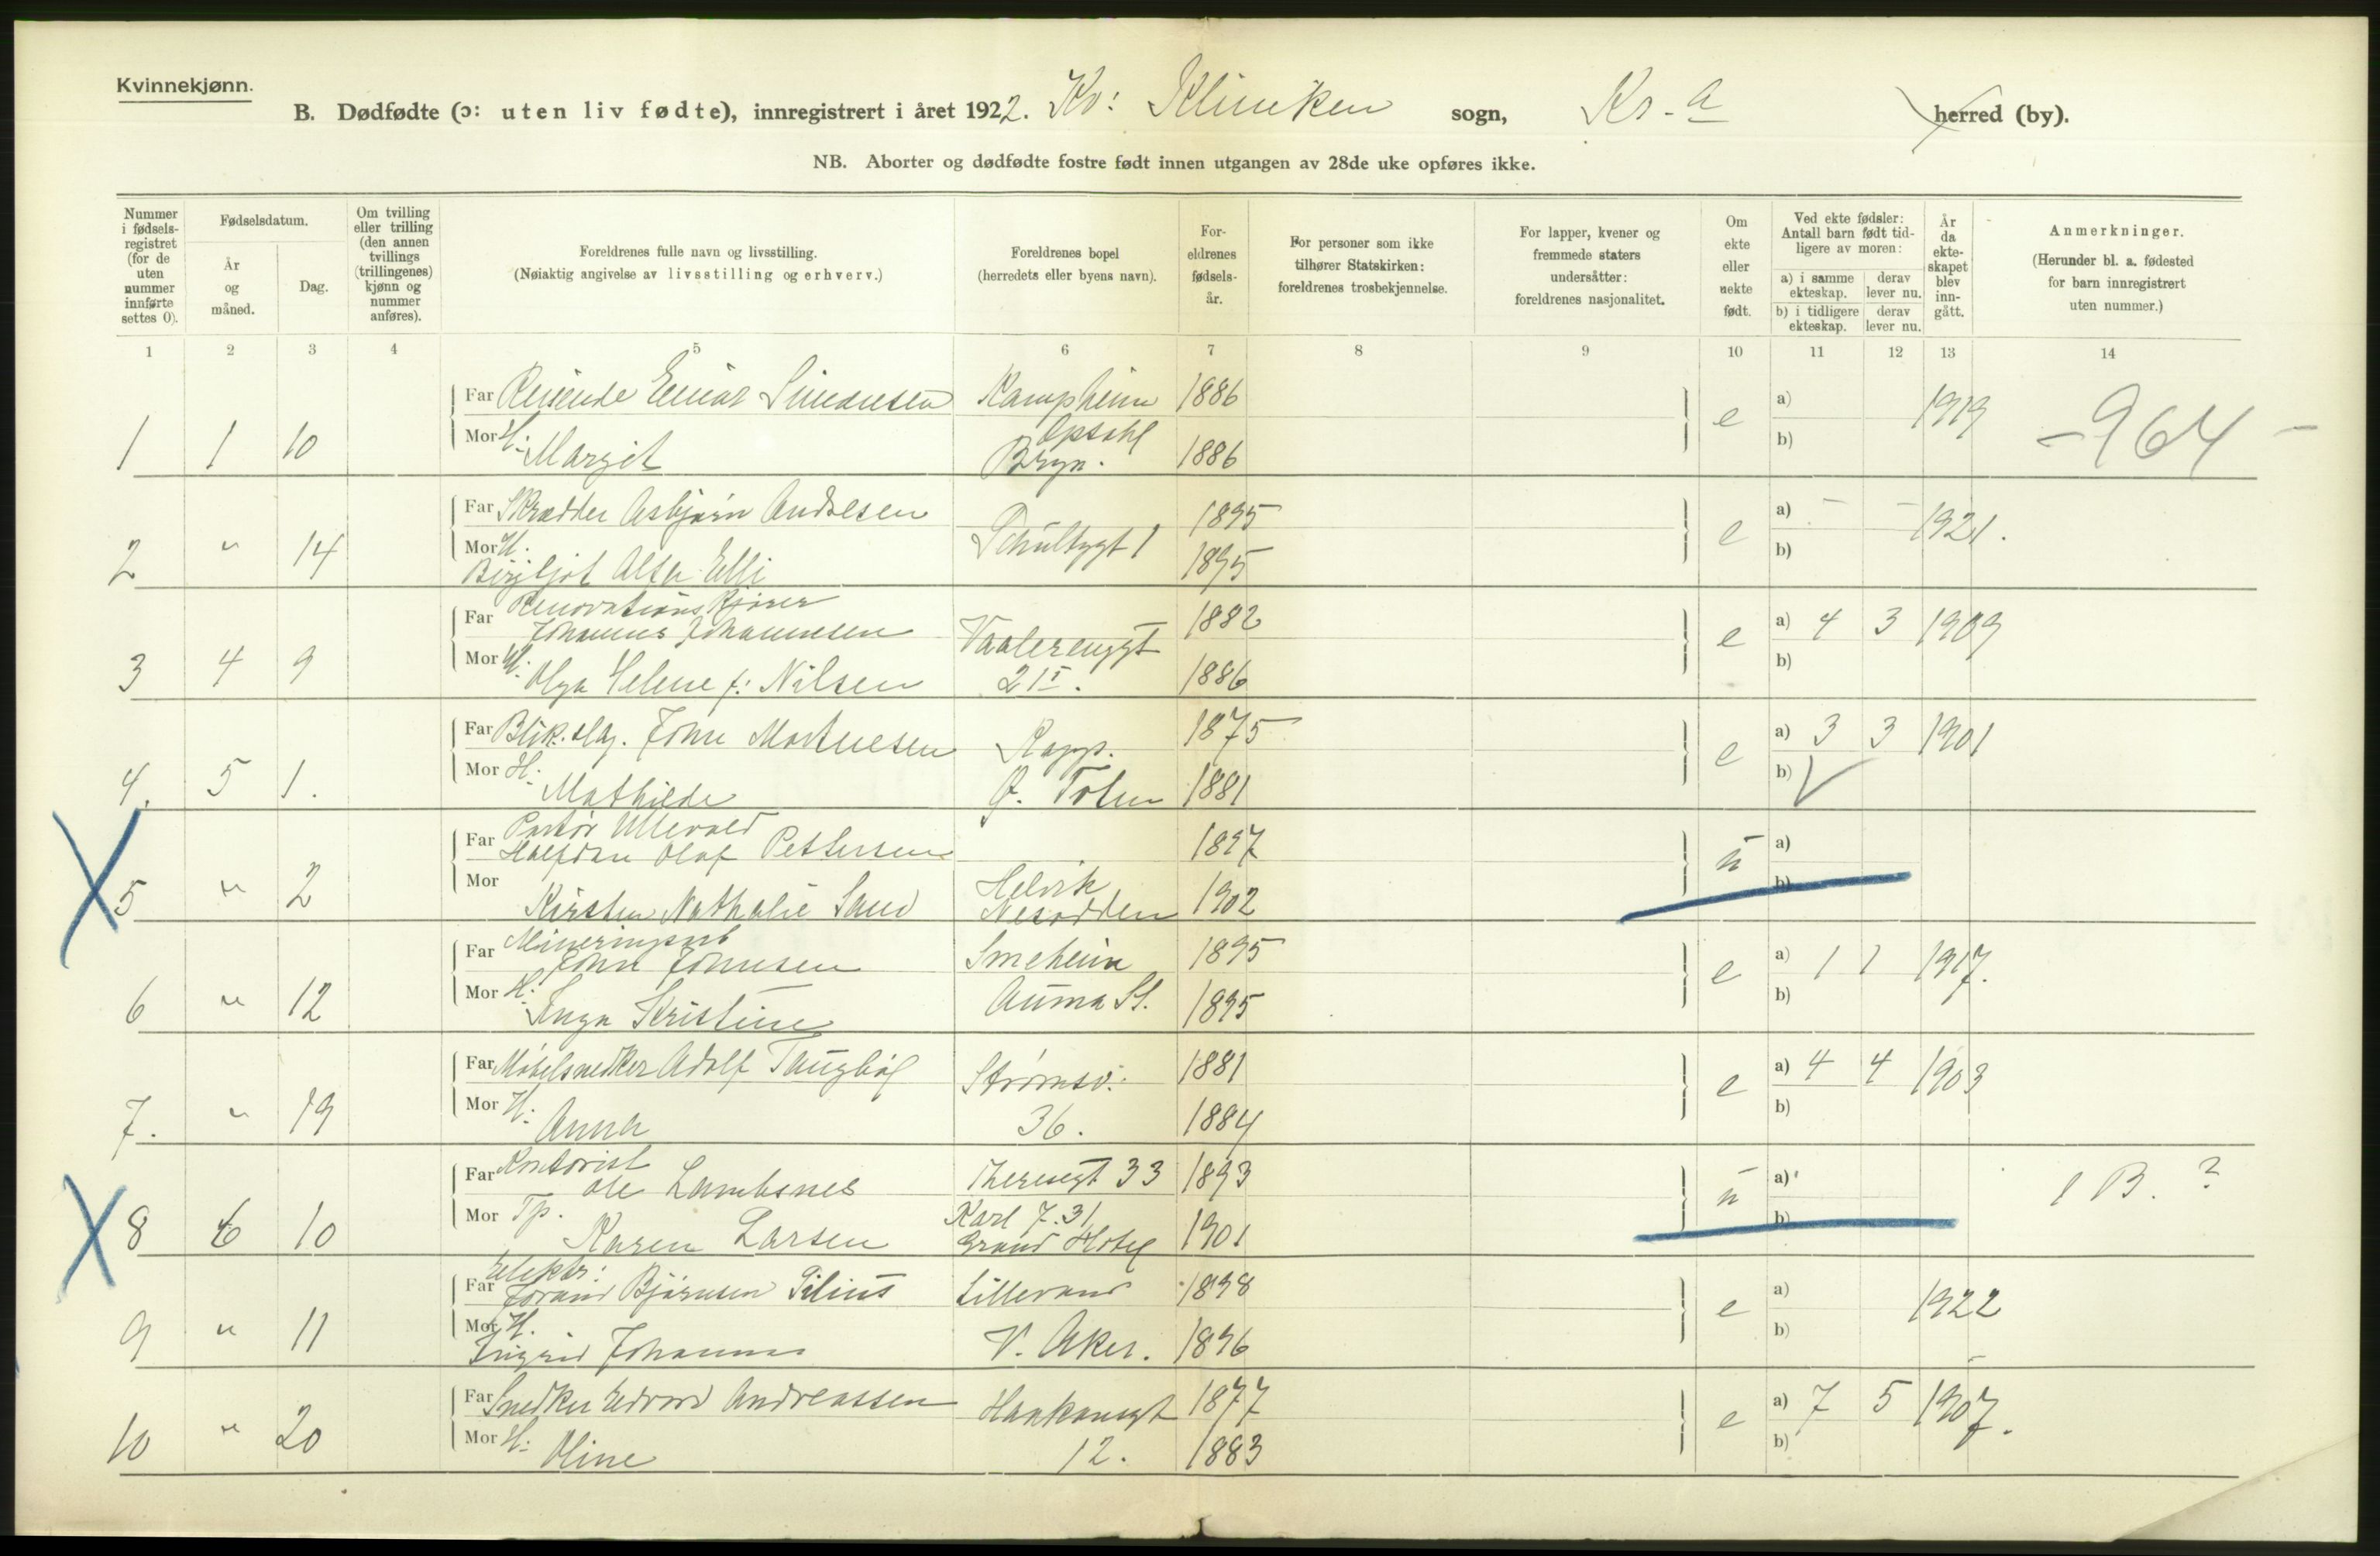 Kvinnekjønn.
B. Dødfødte (ɔ: uten liv fødte), innregistrert i året 1922. Kv: Kliniken sogn, Kr.a herred (by).
NB. Aborter og dødfødte fostre født innen utgangen av 28de uke opføres ikke.
Nummer i fødsels-registret (for de uten nummer innførte settes 0).
Fødselsdatum.
År og måned.
Dag.
Om tvilling eller trilling (den annen tvillings (trillingenes) kjønn og nummer anføres).
Foreldrenes fulle navn og livsstilling.
(Nøiaktig angivelse av livsstilling og erhverv.)
Foreldrenes bopel
(herredets eller byens navn).
For-eldrenes fødsels-år.
For personer som ikke tilhører Statskirken: foreldrenes trosbekjennelse.
For lapper, kvener og fremmede staters undersåtter: foreldrenes nasjonalitet.
Om ekte eller uekte født.
Ved ekte fødsler: Antall barn født tid-ligere av moren:
a) i samme ekteskap. derav lever nu.
b) i tidligere ekteskap. derav lever nu.
År da ekte-skapet blev inn-gått.
Anmerkninger.
(Herunder bl. a. fødested for barn innregistrert uten nummer.)
1 2 3 4 5 6 7 8 9 10 11 12 13 14
Far Reisende Einar Simonsen Kampheim 1886
1 1 10 Mor H. Margit Opsahl Bryn. 1886 e a) b) 1919 -964-
Far Skrædder Asbjørn Andresen 1895
2 " 14 Mor H. Bergljot Alfa Elli Schultzgt 1 1895 e a) - - b) 1921.
Far Renovationskjører Johannes Johannesen 1882
3 4 9 Mor H. Olga Helene f: Nilsen Vaalerenggt 21 I. 1886 e a) 4 3 b) 1909
Far Blik.slag. John Martinesen Kapp. 1875
4. 5 1. Mor H. Mathilde Ø. Toten 1881 e a) 3 3 b) 1901
Far Portør Ullevold Halfdan Olaf Pettersen 1897
5 " 2 Mor Kirsten Nathalie Sand Helvik Nesodden 1902 u a) b)
Far Mineringsarb John Johnsen Smeheim 1895
6 " 12 Mor H. Inga Kristine Auma St. 1895 e a) 1 1 b) 1917.
Far Møbelsnedker Adolf Taugbøl Strømsv: 1881
7. " 19 Mor H. Anna 36. 1884 e a) 4 4 b) 1903
Far Kontorist Ole Lambsnes Theresegt 33 1893
8 6 10 Mor Tp. Karen Larsen Karl J. 31 Grand Hotel 1901 u a) b) 1 B. ?
Far Elektr: Bjørnsen Silius Lillevand 1898
9 " 11 Mor H. Ingrid Johanne V. Aker. 1896 e a) b) 1922
Far Snedker Edvard Andreassen Haakonsgt 1877
10 " 20 Mor H. Oline 12. 1883 e a) 7 5 b) 1907.